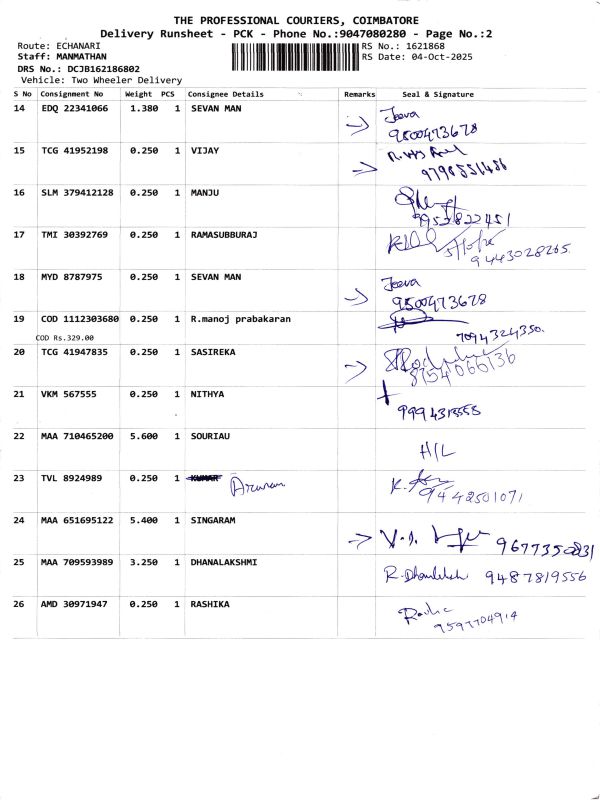 THE PROFESSIONAL COURIERS, COIMBATORE
Delivery Runsheet - PCK - Phone No.:9047080280 - Page No.:2
Route: ECHANARI RS No.: 1621868
Staff: MANMATHAN RS Date: 04-Oct-2025
DRS No.: DCJB162186802
Vehicle: Two Wheeler Delivery
S No Consignment No Weight PCS Consignee Details Remarks Seal & Signature
14 EDQ 22341066 1.380 1 SEVAN MAN Jeeva
9500473678
15 TCG 41952198 0.250 1 VIJAY
9798551486
16 SLM 379412128 0.250 1 MANJU
9952822451
17 TMI 30392769 0.250 1 RAMASUBBURAJ
9443028265
18 MYD 8787975 0.250 1 SEVAN MAN Jeeva
9500473678
19 COD 1112303680 0.250 1 R.manoj prabakaran
COD Rs.329.00 7094324350
20 TCG 41947835 0.250 1 SASIREKA
8754066136
21 VKM 567555 0.250 1 NITHYA
22 MAA 710465200 5.600 1 SOURIAU H/L
23 TVL 8924989 0.250 1 KUMAR
9442501071
24 MAA 651695122 5.400 1 SINGARAM
25 MAA 709593989 3.250 1 DHANALAKSHMI 9487819556
26 AMD 30971947 0.250 1 RASHIKA
9597704914